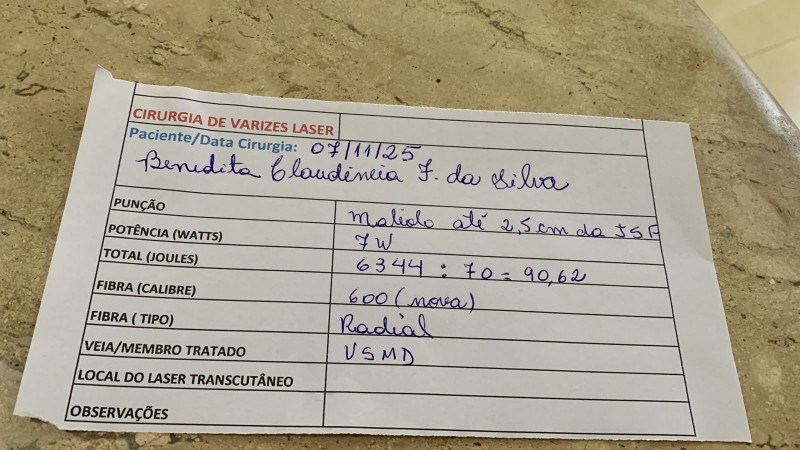 CIRURGIA DE VARIZES LASER
Paciente/Data Cirurgia: 07/11/25
Benedita Claudineia F. da Silva
PUNÇÃO maléolo até 2,5cm da JSF
POTÊNCIA (WATTS) 7W
TOTAL (JOULES) 6344 : 70 = 90,62
FIBRA (CALIBRE) 600 (nova)
FIBRA ( TIPO) Radial
VEIA/MEMBRO TRATADO VSMD
LOCAL DO LASER TRANSCUTÂNEO
OBSERVAÇÕES